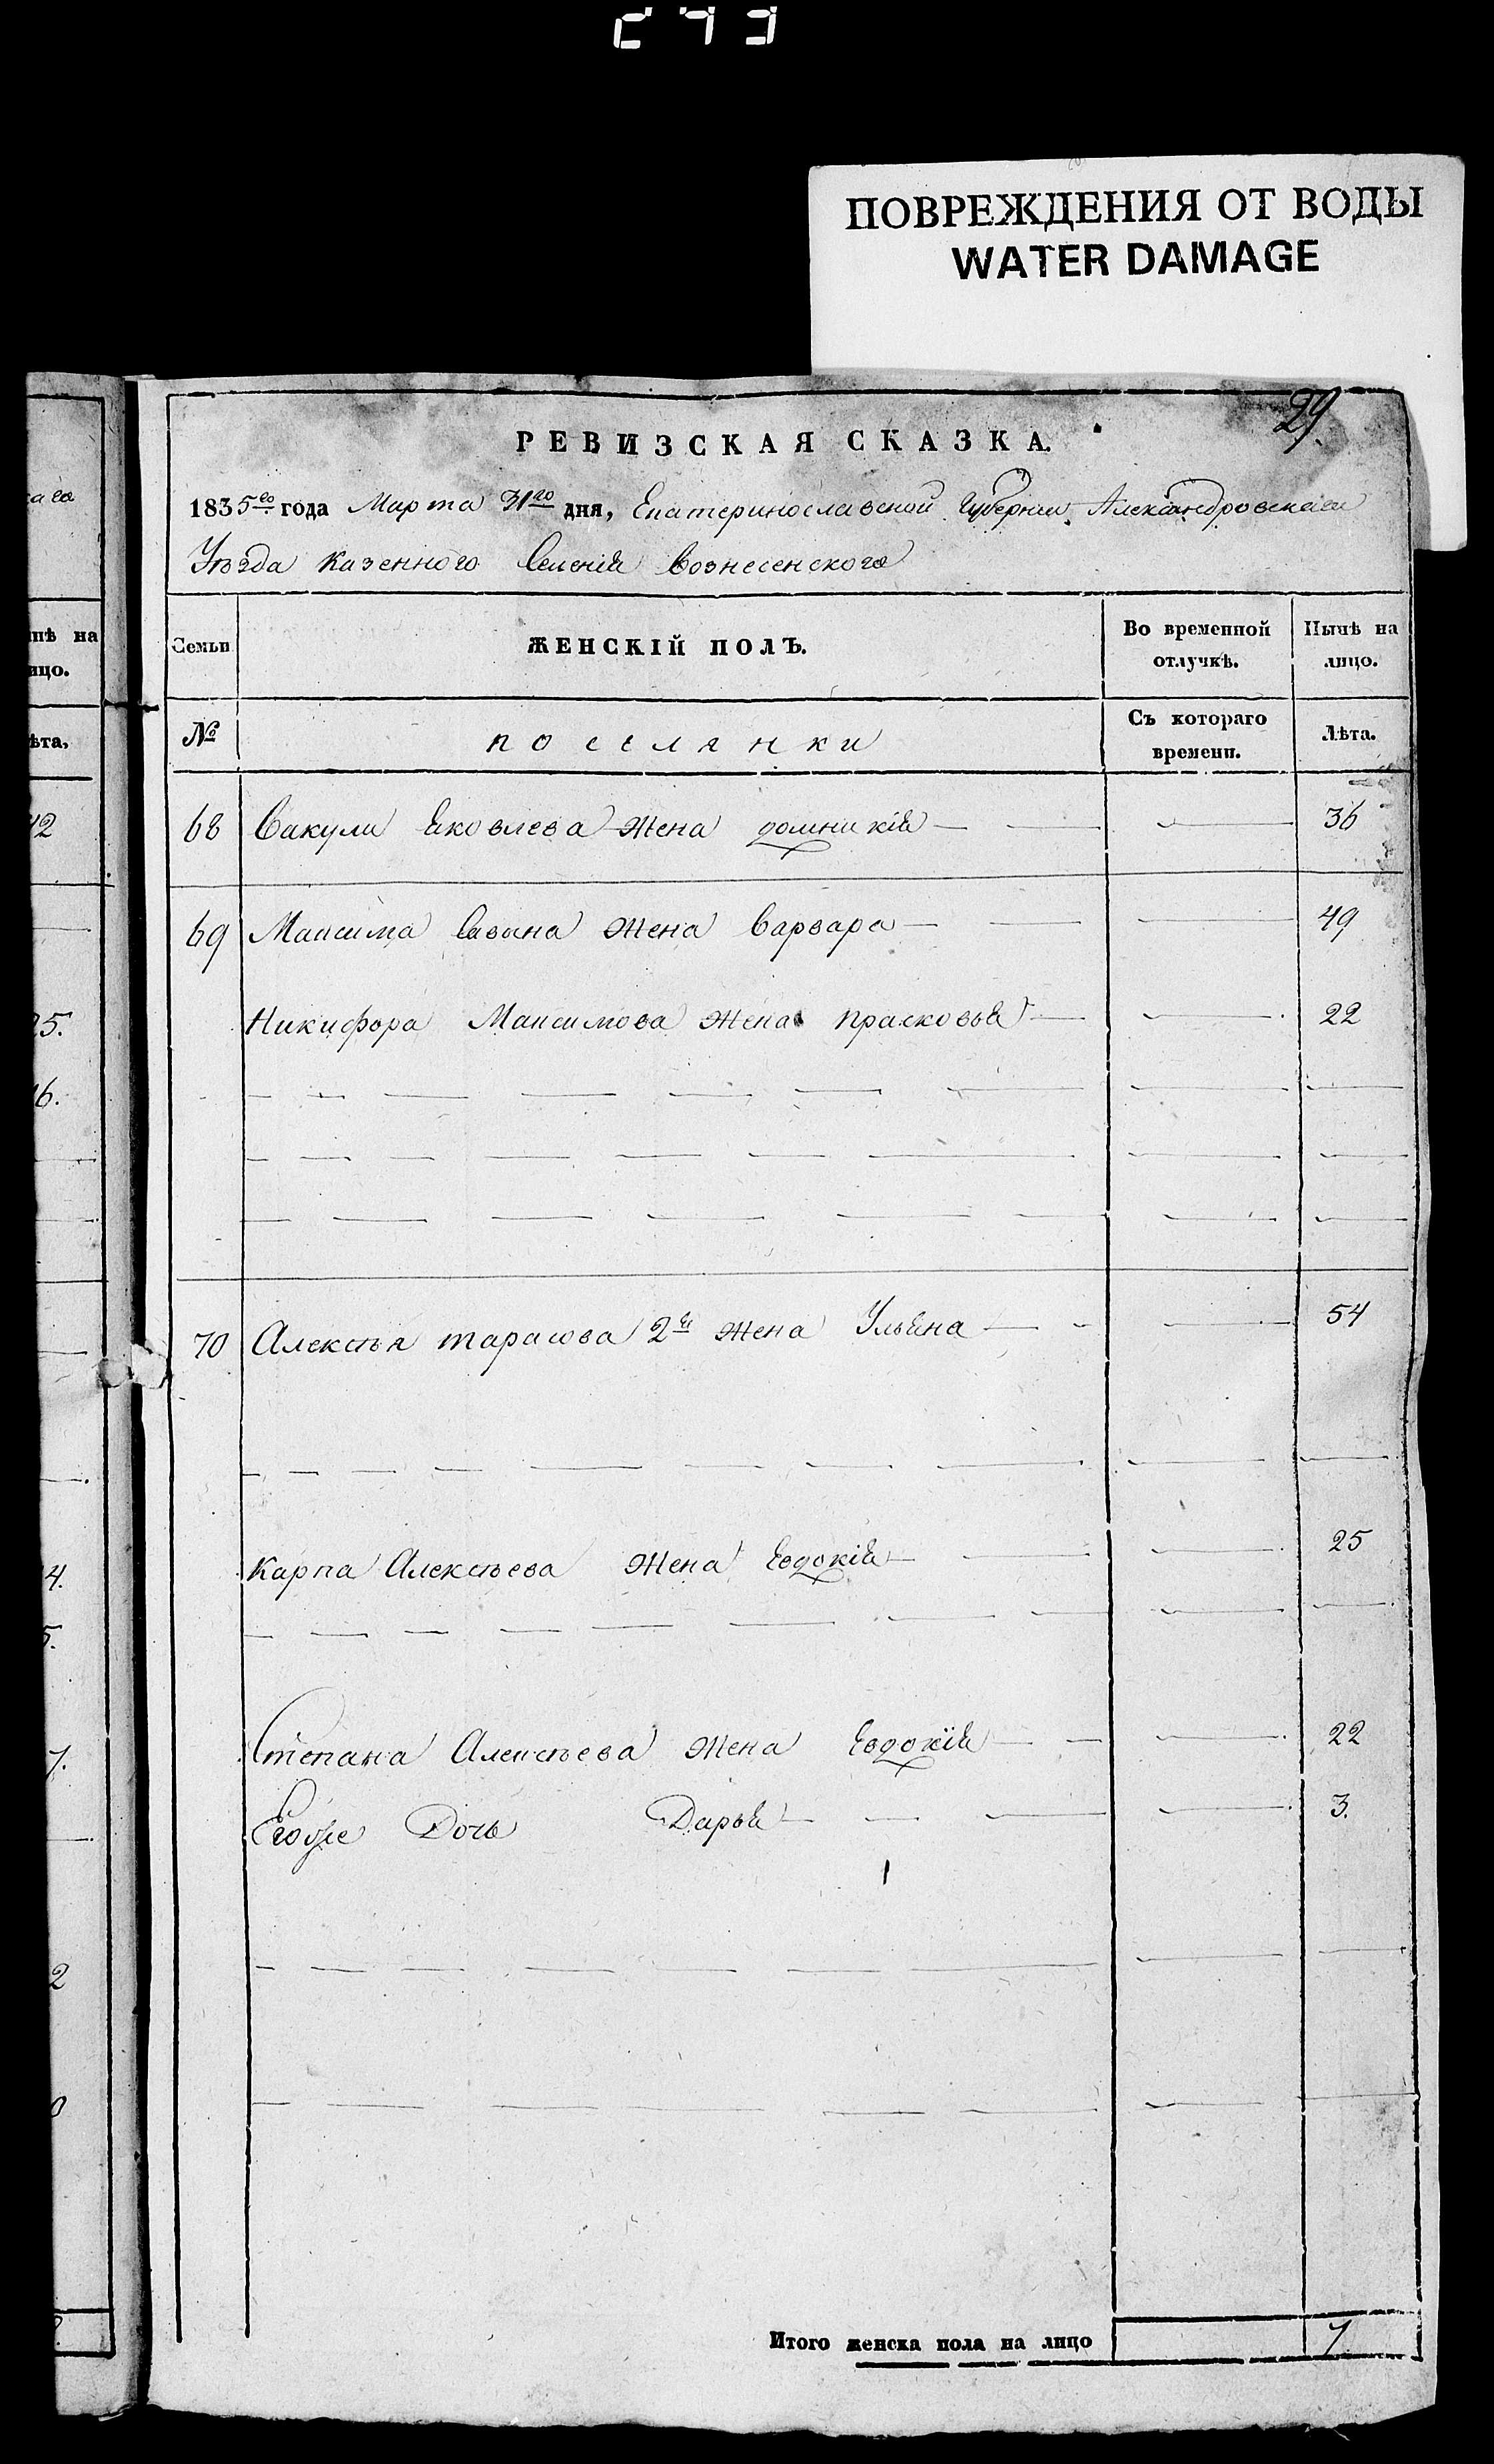 ПОВРЕЖДЕНИЯ ОТ ВОДЫ
WATER DAMAGE
29.
РЕВИЗСКАЯ СКАЗКА.
1835го года Марта 31го дня, Екатеринославской Губернии Александровскаго
Уѣзда Казенного Селенія Вознесенского
Семьи
ЖЕНСКІЙ ПОЛЪ.
Во временной отлучкѣ.
Нынѣ на лицо.
№
поселянки
Съ котораго времени.
Лѣта.
68 Вакулы Яковлева Жена Домникія 36
69 Максима Савына Жена Варвара 49
Никифора Максимова Жена Прасковья 22
70 Алексѣя Тарасова 2я Жена Ульяна 54
Карпа Алексѣева Жена Евдокія 25
Степана Алексѣева Жена Евдокія 22
Егоже Дочь Дарья 3.
Итого женска пола на лицо 7
наго
нѣ на
ицо.
ѣта,
12
25.
16.
4.
5.
7.
2
0